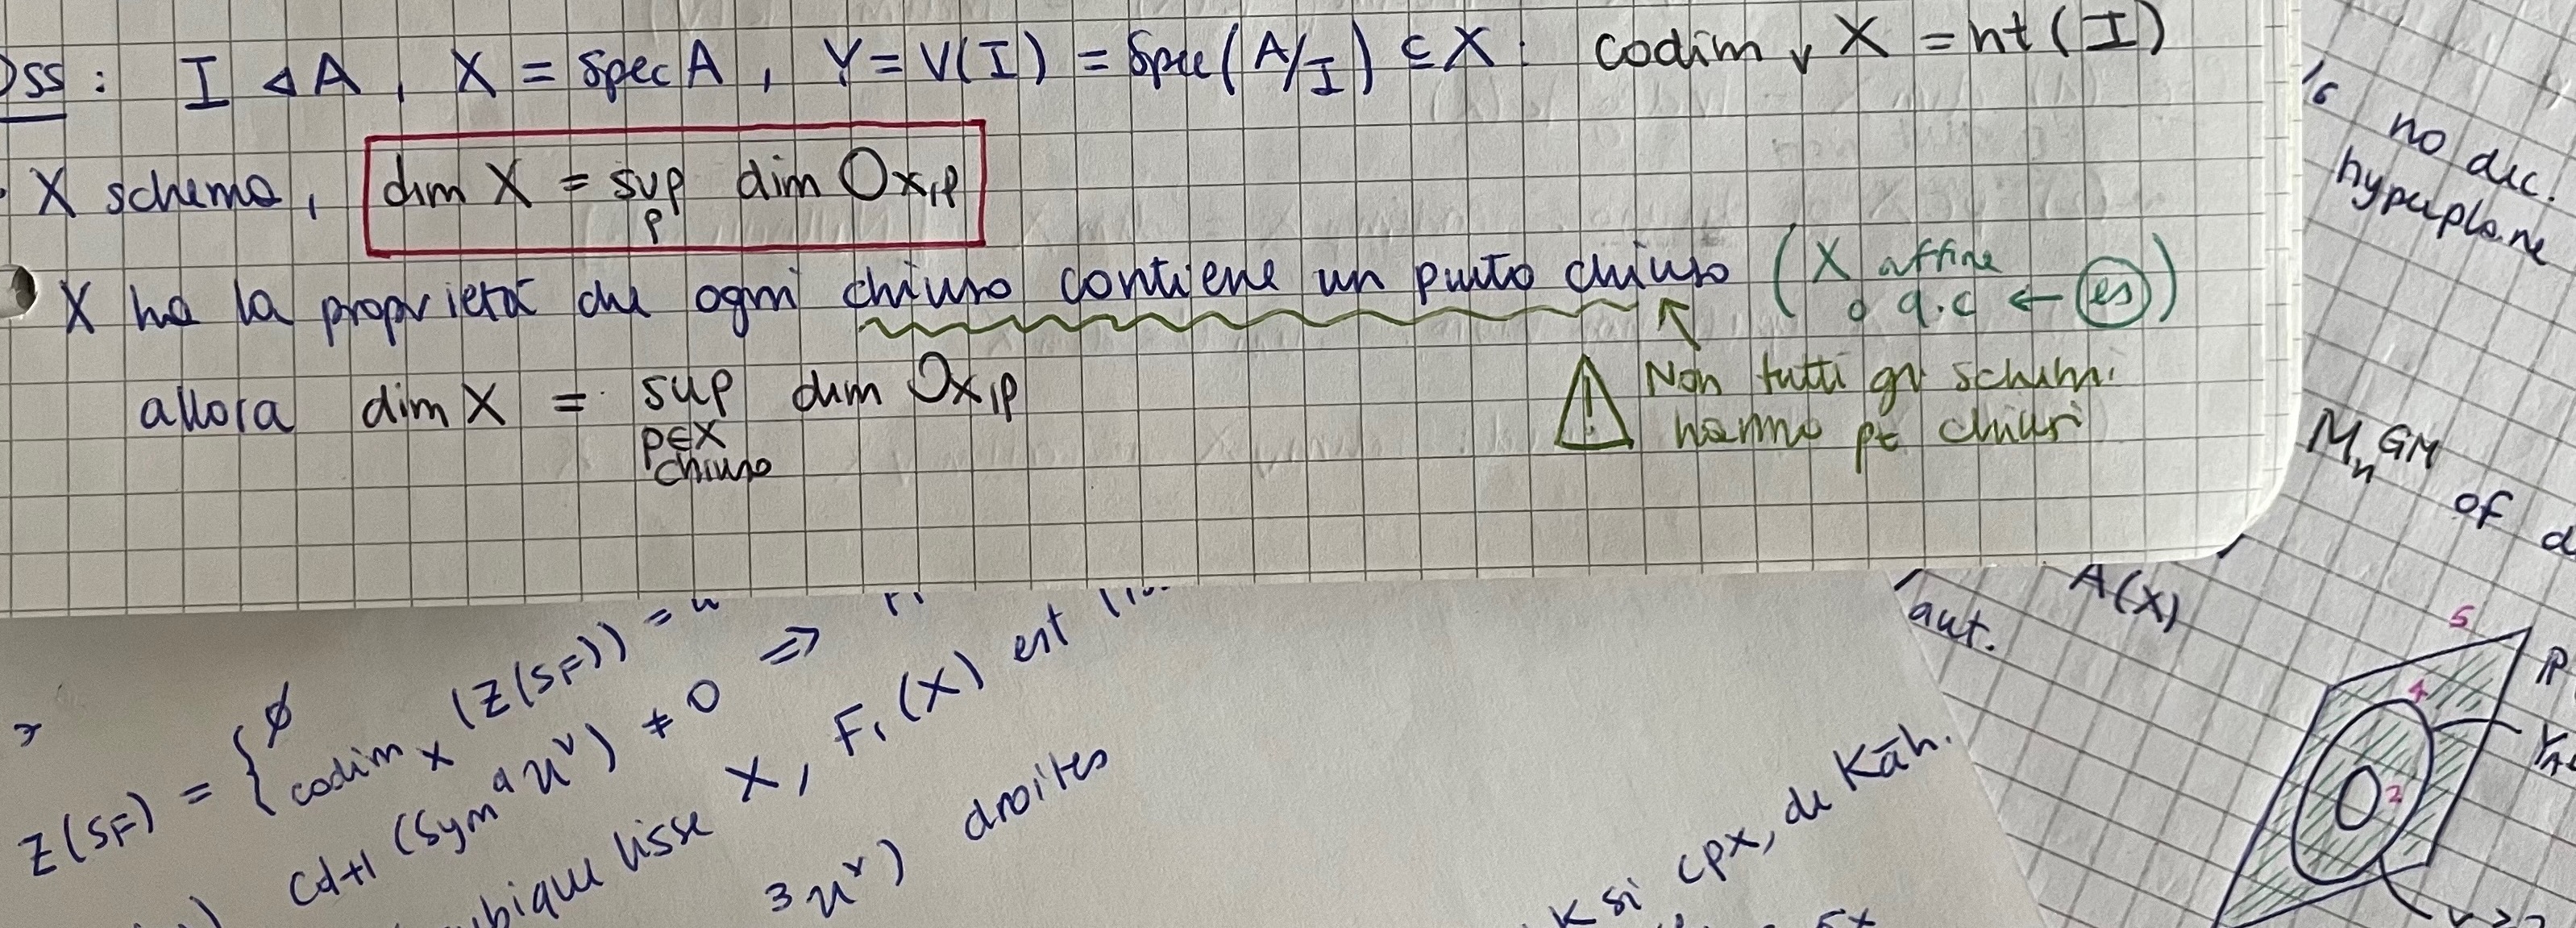 Oss: I ◁ A, X = Spec A, Y = V(I) = Spec(A/I) ⊆ X: codim_Y X = ht(I)
• X schema, dim X = sup_p dim O_{X,p}
X ha la proprietà che ogni chiuso contiene un punto chiuso (X affine
o q.c ← es)
allora dim X = sup_{p∈X chiuso} dim O_{X,p}
⚠ Non tutti gli schemi
hanno pt chiusi
no dec.
hyperplane
M_n GM
of
A(X)
aut.
5
4
2
P
Z(S_F) = { ∅
codim_X (Z(S_F)) =
C_{d+1} (Sym^d U^v) ≠ 0 ⇒
lisse X, F_1(X) est
3 U^v) droites
K si cpx, de Käh.